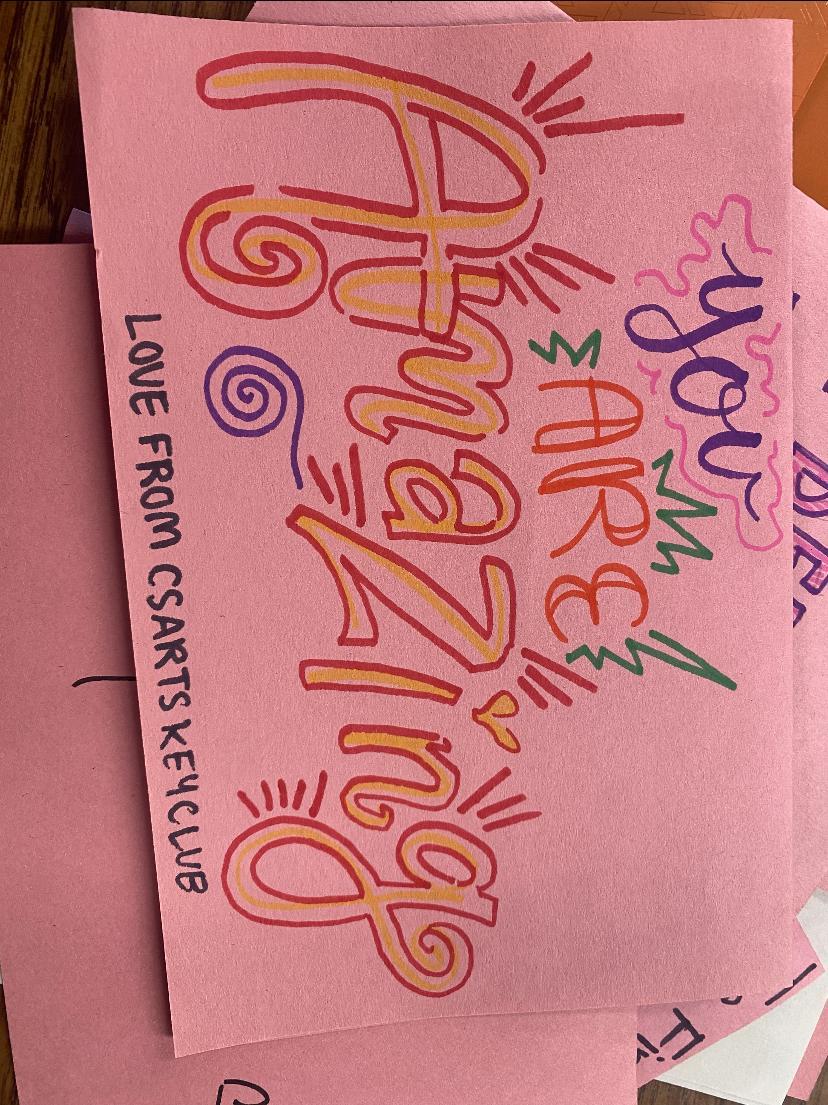 you
ARE
AmaZing
LOVE FROM CSARTS KEY CLUB